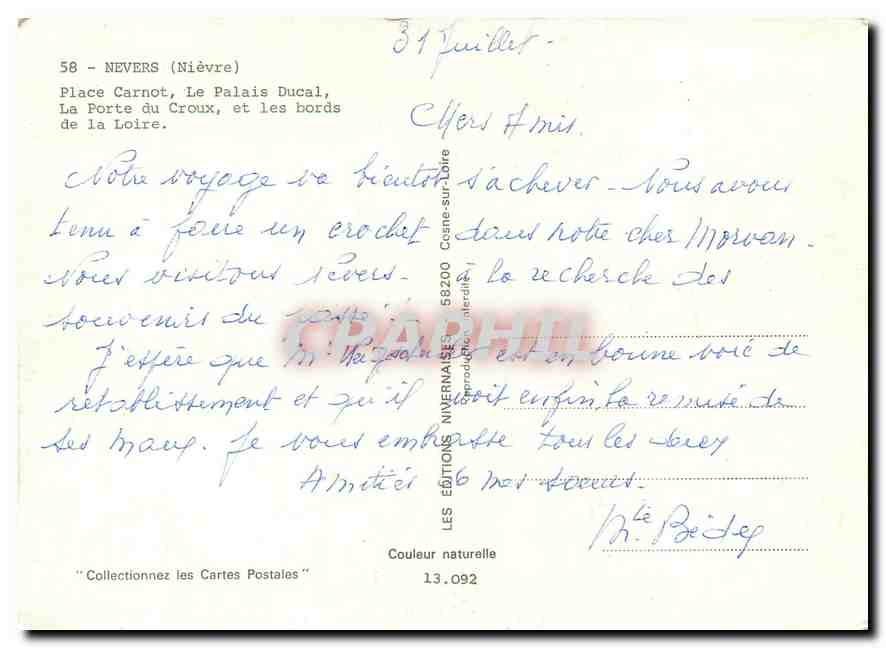 31 Juillet -
58 - NEVERS (Nièvre)
Place Carnot, Le Palais Ducal,
La Porte du Croux, et les bords
de la Loire.
Chers Amis.
Notre voyage va bientôt s'achever - Nous avons
tenu à faire un crochet dans notre cher Morvan -
Nous visitons Nevers - à la recherche des
souvenirs du passé !
J'espère que Mr est en bonne voie de
rétablissement et qu'il voit enfin la remise de
ses maux. Je vous embrasse tous les deux
Amitiés de mes soeurs -
Mlle
LES EDITIONS NIVERNAISES 58200 Cosne-sur-Loire
Reproduction interdite
CPAPHIL
Couleur naturelle
"Collectionnez les Cartes Postales"
13.092